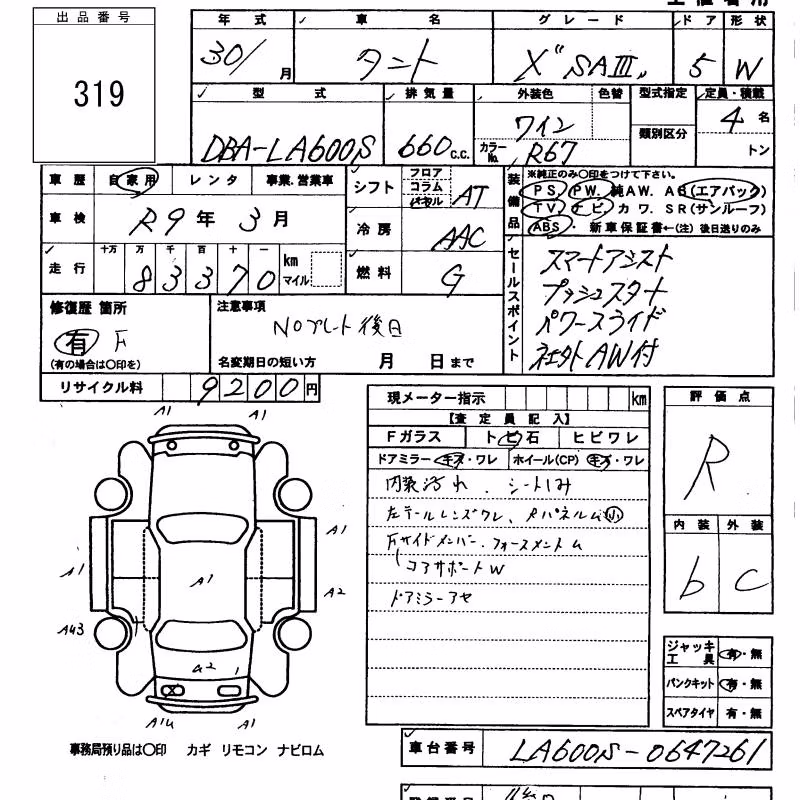 出品番号
319
年式
30/ 月
車名
タント
グレード
X"SAⅢ"
ドア
5
形状
W
型式
DBA-LA600S
排気量
660 c.c.
外装色
ワイン
色替
カラーNo.
R67
型式指定
類別区分
定員・積載
4 名
トン
車歴
自家用
レンタ
事業.営業車
車検
R9年 3月
走行
十万 万 千 百 十 一
8 3 3 7 0
km
マイル
シフト
フロア
コラム
パネル
AT
冷房
AAC
燃料
G
装備品
※純正のみ〇印をつけて下さい。
PS. PW. 純AW. AB(エアバック)
TV. ナビ. カワ. SR(サンルーフ)
ABS ・ 新車保証書←(注) 後日送りのみ
セールスポイント
スマートアシスト
プッシュスタート
パワースライド
社外AW付
修復歴 箇所
有 F
(有の場合は〇印を)
注意事項
NOプレート後日
名変期日の短い方 月 日まで
リサイクル料
9200円
現メーター指示 km
【査定員記入】
Fガラス
トビ石
ヒビワレ
ドアミラー キズ・ワレ
ホイール(CP) キズ・ワレ
内装汚れ、シートしみ
左テールレンズワレ、Rパネルム小
Fサイドメンバー、フォースメントム
コアサポートW
ドアミラーアセ
評価点
R
内装
b
外装
C
A1 A1
A1
A1
A1
A2
A43
A2
A1
ジャッキ
工具
有・無
パンクキット 有・無
スペアタイヤ 有・無
事務局預り品は〇印 カギ リモコン ナビロム
車台番号
LA600S-0647261